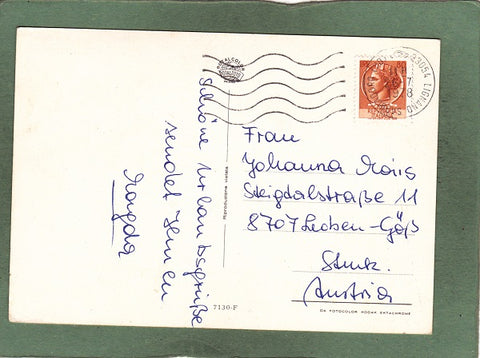 schöne Urlaubsgrüße
sendet Ihnen
Magda
Frau
Johanna
Steigtalstraße 11
8707 Leoben-Göß
Stmk.
Austria
Riproduzione vietata
7130-F
DA FOTOCOLOR KODAK EKTACHROME
33054 LIGNANO